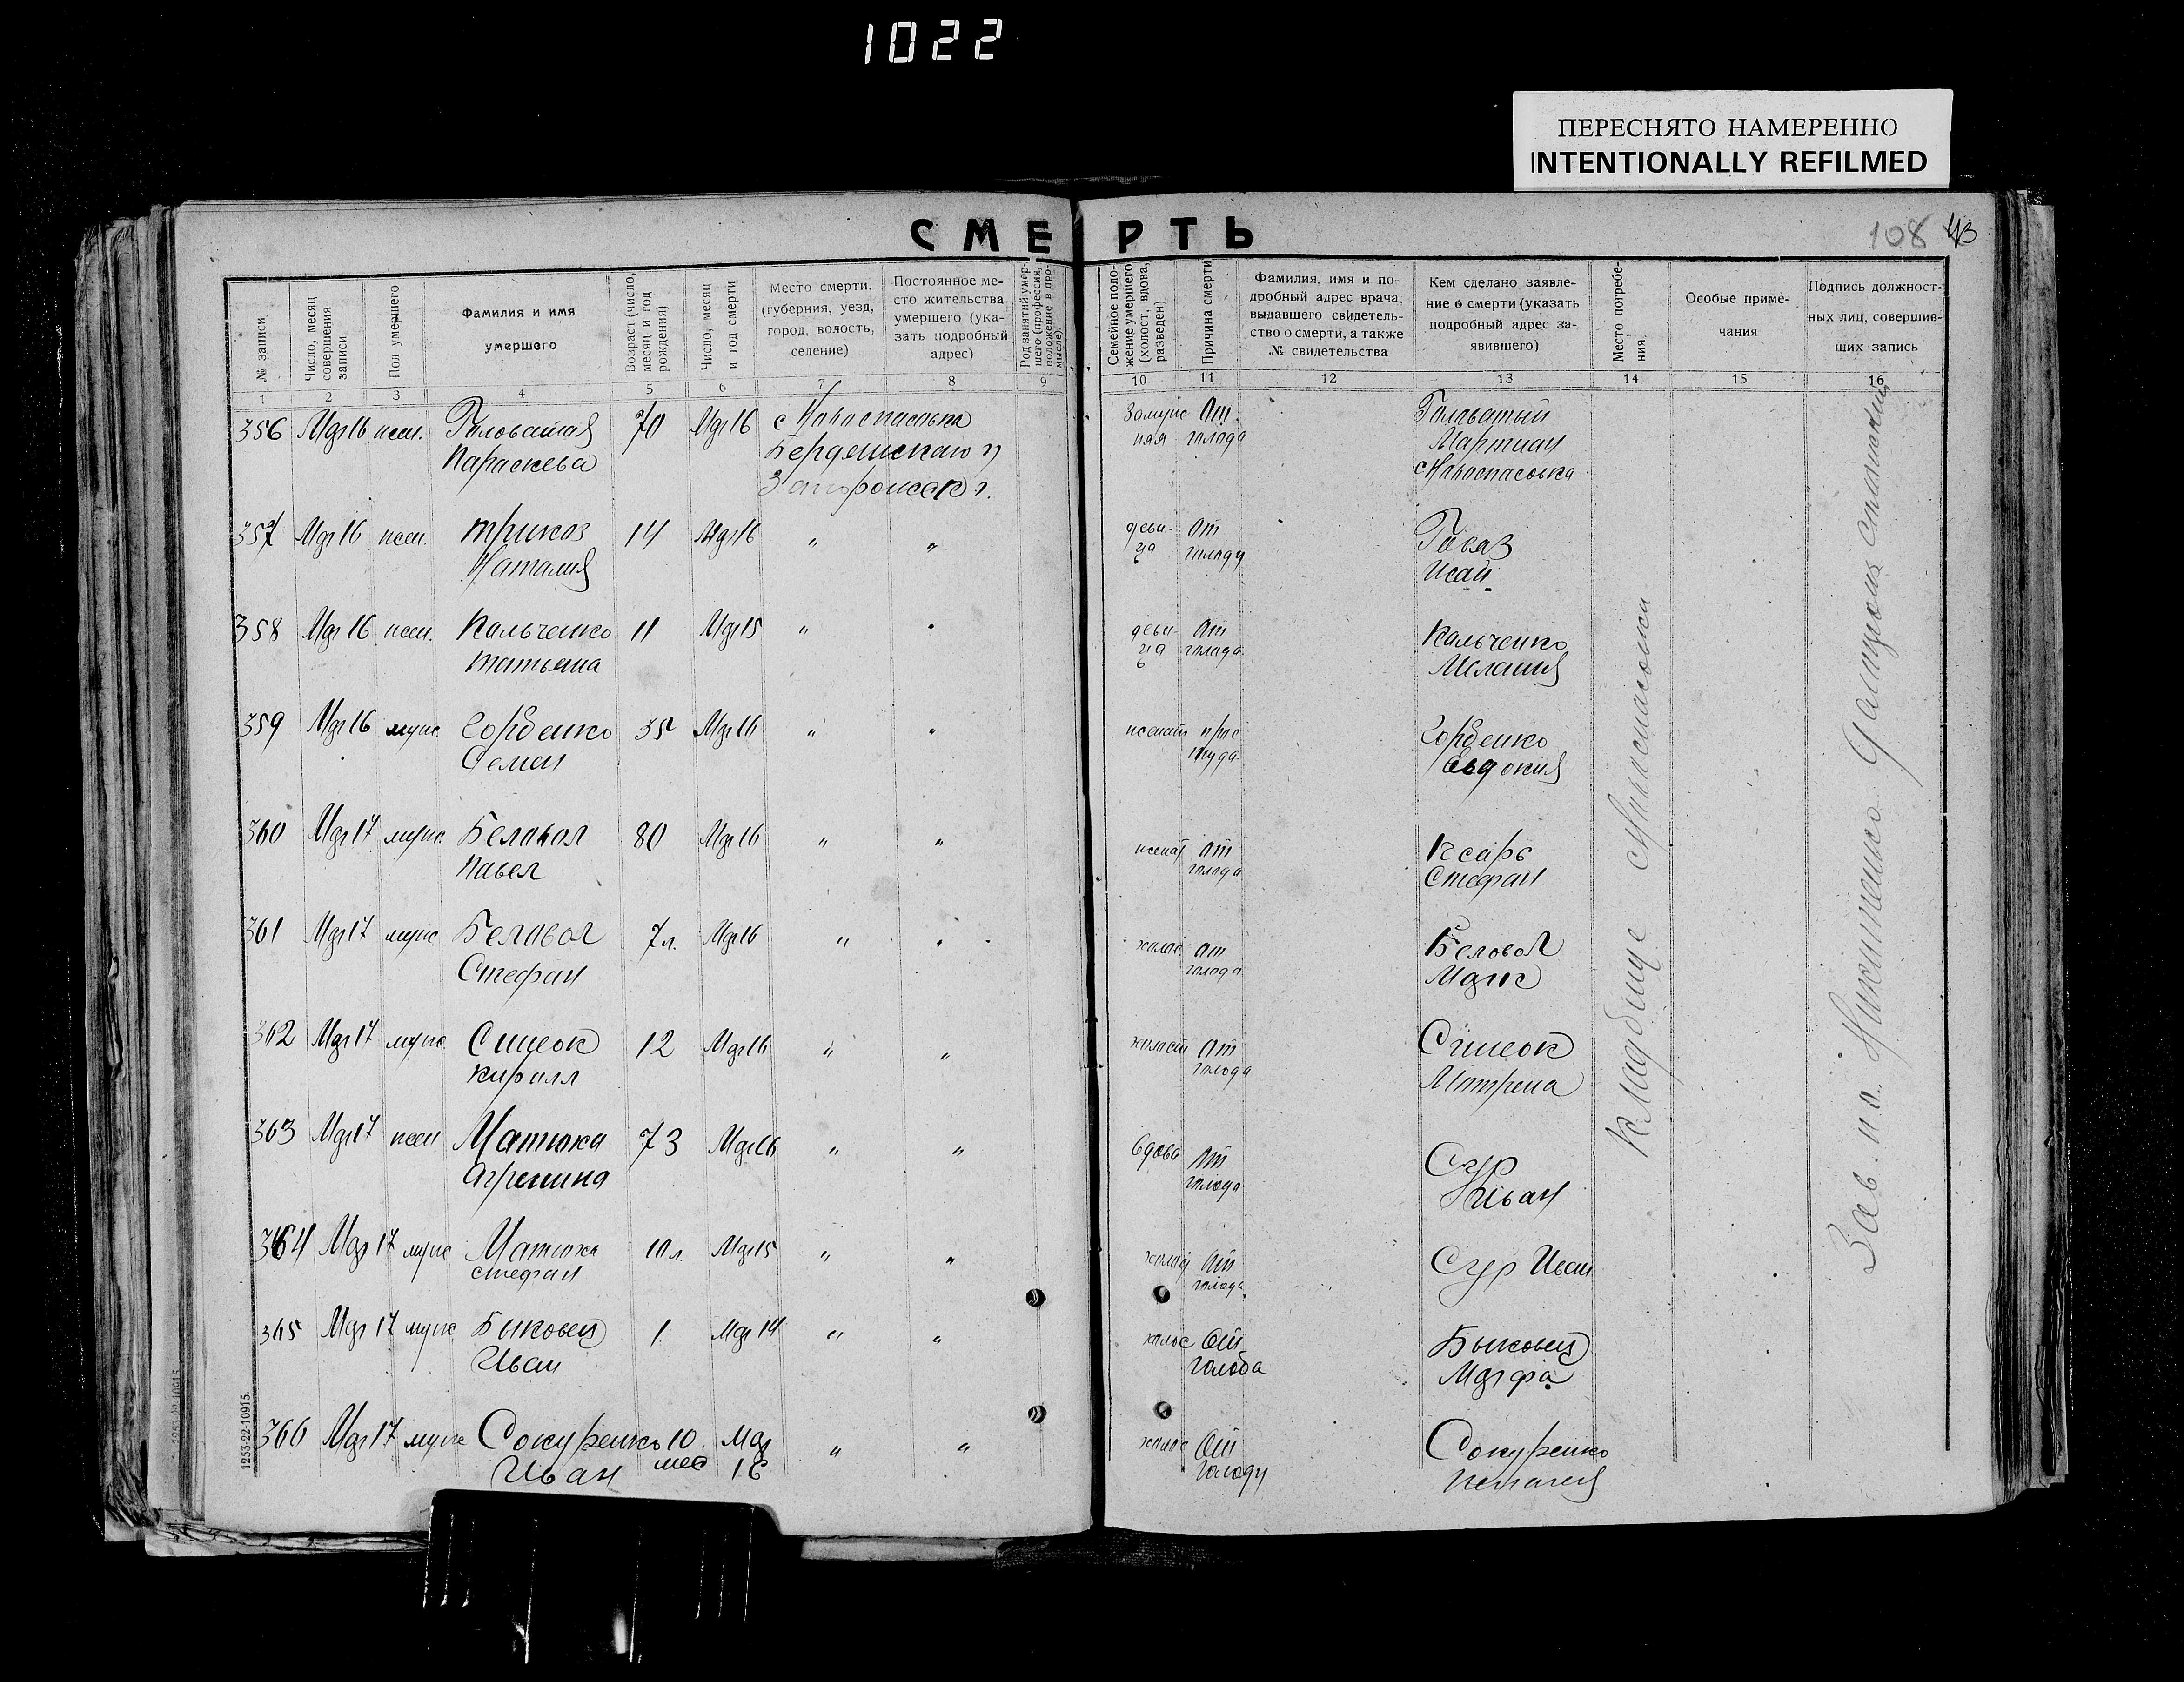 1022
ПЕРЕСНЯТО НАМЕРЕННО
INTENTIONALLY REFILMED
СМЕРТЬ
108 43
№ записи
Число, месяц совершения записи
Пол умершего
Фамилия и имя умершего
Возраст (число, месяц и год рождения)
Число, месяц и год смерти
Место смерти. (губерния, уезд, город, волость, селение)
Постоянное место жительства умершего (указать подробный адрес)
Род занятий умершего (профессия, положение в промысле)
Семейное положение умершего (холост, вдова, разведен)
Причина смерти
Фамилия, имя и подробный адрес врача, выдавшего свидетельство о смерти, а также № свидетельства
Кем сделано заявление о смерти (указать подробный адрес заявившего)
Место погребения.
Особые примечания
Подпись должностных лиц, совершивших запись
1 2 3 4 5 6 7 8 9 10 11 12 13 14 15 16
356 16 жен. Головатая 70 16 с Новоспасовка От Головатый
Параскева Бердянского голода Мартиан
с Новоспасовка
357 16 жен. Трикоз 14 16 " " деви- От
Наталия ца голоду Исай
358 16 жен. Кальченко 11 15 " " деви- От Кальченко
Татьяна ца голода Мелания
359 16 муж. Горбенко 35 16 " " женат Горбенко
Семен Евдокия
360 17 муж. Беловол 80 16 " " женат От
Павел голода Стефан
361 17 муж Беловол 7 л. 16 " " От Беловол
Стефан голода
362 17 муж. 12 16 " " холост От
Кирилл голода
363 17 жен Матюха 73 16 " " вдова От Сур
голода Иван
364 17 муж Матюха 10 л. 15 " " От Сур Иван
Стефан голода
365 17 муж Быковец 1 14 " " От Быковец
Иван голода Марфа
366 17 муж Сокуренко 10 " " От Сокуренко
Иван мес 16 голоду Пелагея
Кладбище с Новоспасовки
Зав. по Никитенко
1253-22-10915.